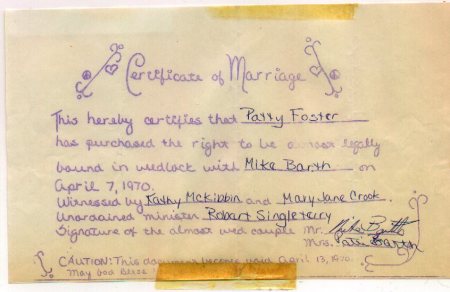 Certificate of Marriage
This hereby certifies that Patty Foster
has purchased the right to be almost legally
bound in wedlock with Mike Barth on
April 7, 1970.
Witnessed by Kathy McKibbin and Mary Jane Crook.
Unordained minister Robert Singleterry
Signature of the almost wed couple Mr. Mike Barth
Mrs. Patti Barth
CAUTION: This document becomes void April 13, 1970.
May God Bless